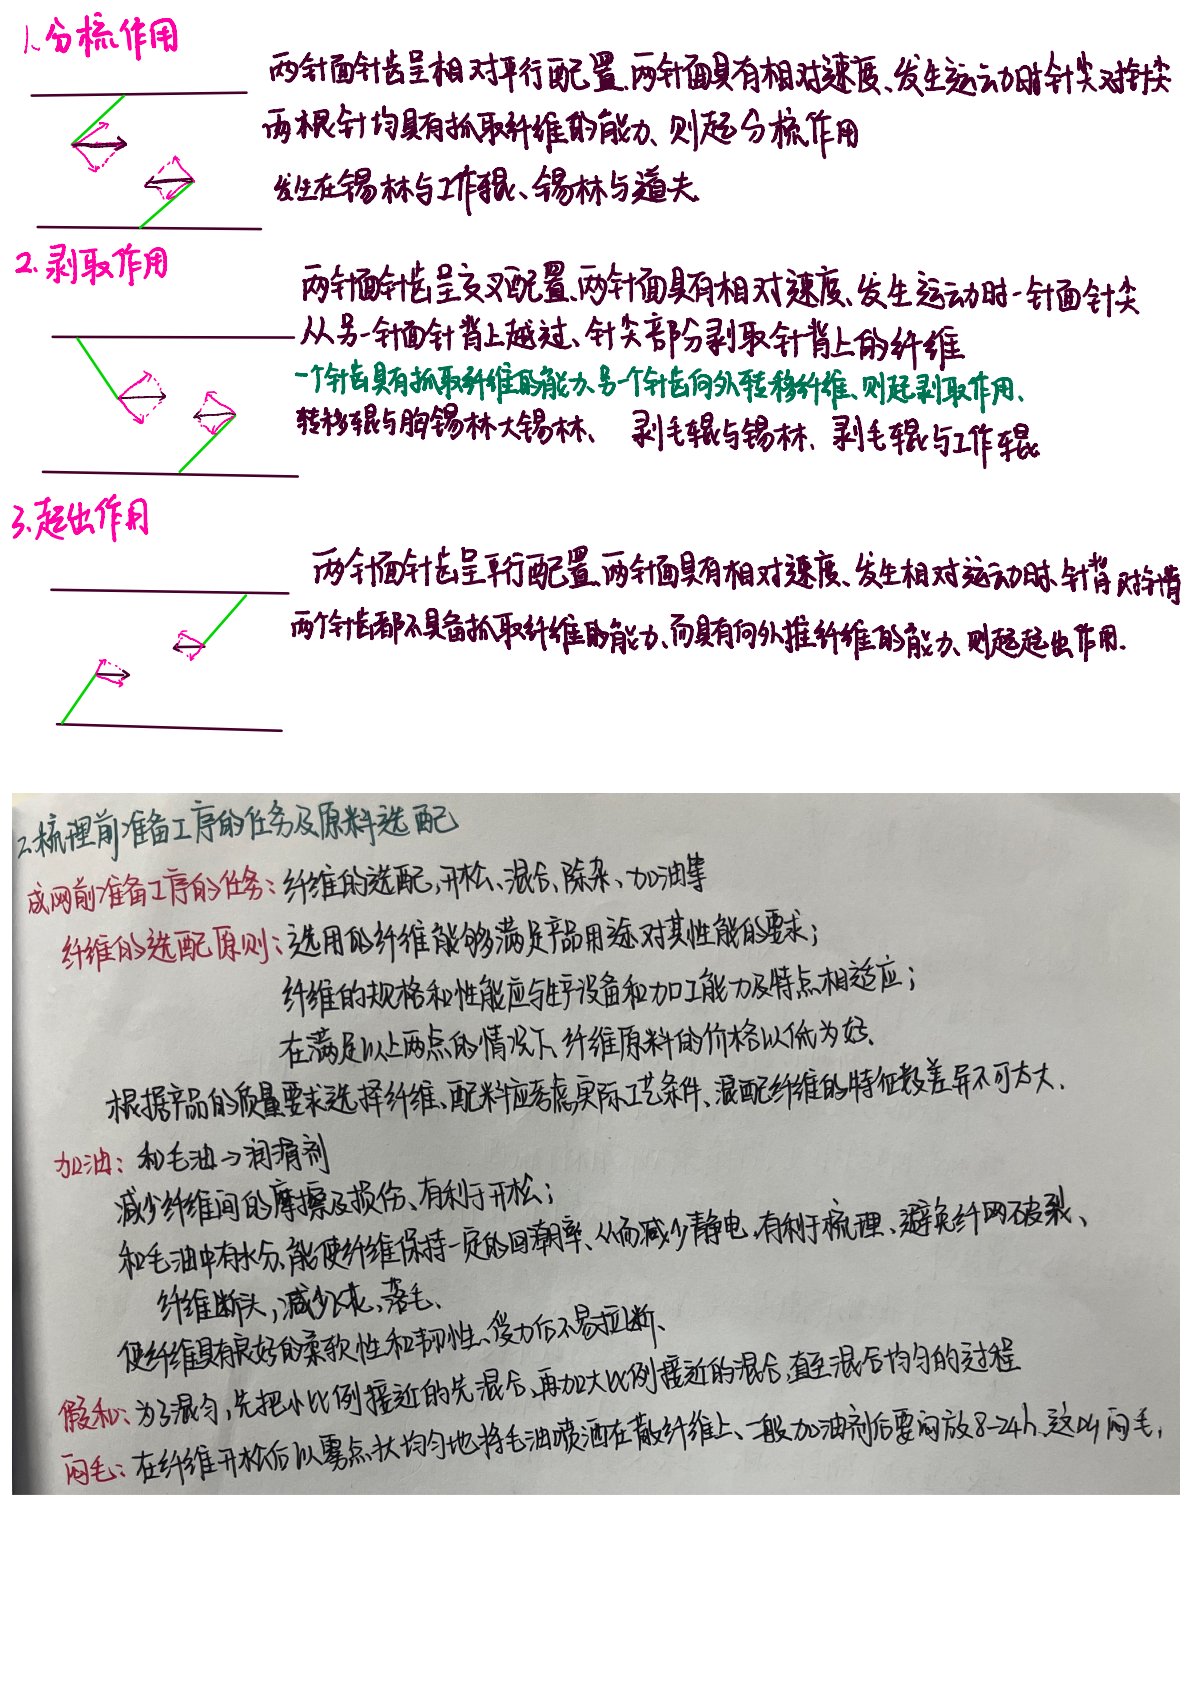 1、分梳作用
两针面针齿呈相对平行配置、两针面具有相对速度、发生运动时针尖对针尖
两根针均具有抓取纤维的能力、则起分梳作用
发生在锡林与工作辊、锡林与道夫
2.剥取作用
两针面针齿呈交叉配置、两针面具有相对速度、发生运动时一针面针尖
从另一针面针背上越过、针尖部分剥取针背上的纤维
一个针齿具有抓取纤维的能力、另一个针齿向外转移纤维、则起剥取作用、
转移辊与胸锡林大锡林、 剥毛辊与锡林、剥毛辊与工作辊
3.起出作用
两个针面针齿呈平行配置、两针面具有相对速度、发生相对运动时、针背对针背
两个针齿都不具备抓取纤维的能力、而具有向外推纤维的能力、则起起出作用.
2.梳理前准备工序的任务及原料选配
成网前准备工序的任务:纤维的选配,开松、混合、除杂、加油等
纤维的选配原则:选用的纤维能够满足产品用途对其性能的要求;
纤维的规格和性能应与生产设备和加工能力及特点相适应;
在满足以上两点的情况下、纤维原料的价格以低为好.
根据产品的质量要求选择纤维、配料应考虑实际工艺条件、混配纤维的特征数差异不可太大.
加油:和毛油→润滑剂
减少纤维间的摩擦及损伤、有利于开松;
和毛油中有水分、能使纤维保持一定的回潮率、从而减少静电,有利于梳理、避免纤网破裂、
纤维断头,减少飞花、落毛、
使纤维具有良好的柔软性和韧性、受力后不易拉断、
假和:为了混匀,先把小比例接近的先混合、再加大比例接近的混合、直至混合均匀的过程
闷毛:在纤维开松后以雾点状均匀地将毛油喷洒在散纤维上、一般加油剂后要闷放8-24h、这叫闷毛,